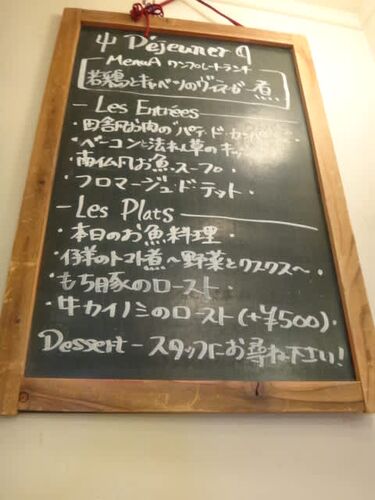 Déjeuner
MenuA ワンプレートランチ
若鶏とキャベツのヴィネガー煮
Les Entrées
・田舎風お肉のパテ・ド・カンパーニュ
・ベーコンと法れん草のキッシュ
・南仏風お魚スープ・
・フロマージュ・ド・テット・
Les Plats
・本日のお魚料理・
・仔羊のトマト煮〜野菜とクスクス〜・
・もち豚のロースト・
・牛カイノミのロースト(+¥500)・
Dessert - スタッフにお尋ね下さい!